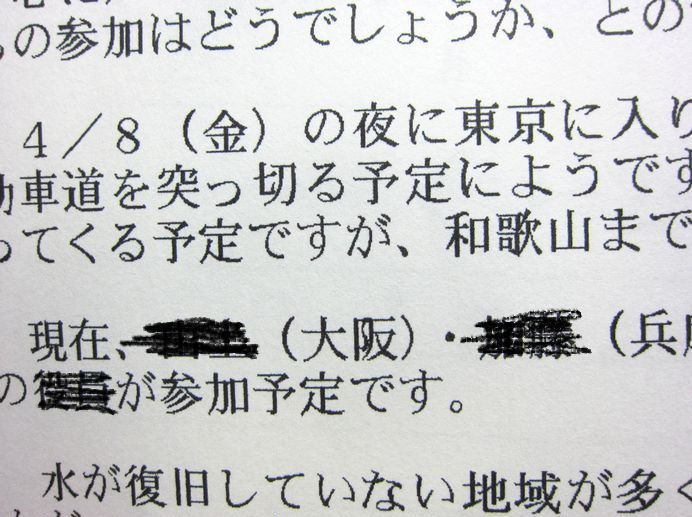 の参加はどうでしょうか、との
4／8（金）の夜に東京に入り
動車道を突っ切る予定にようです
ってくる予定ですが、和歌山まで
現在、（大阪）・（兵庫
の が参加予定です。
水が復旧していない地域が多く